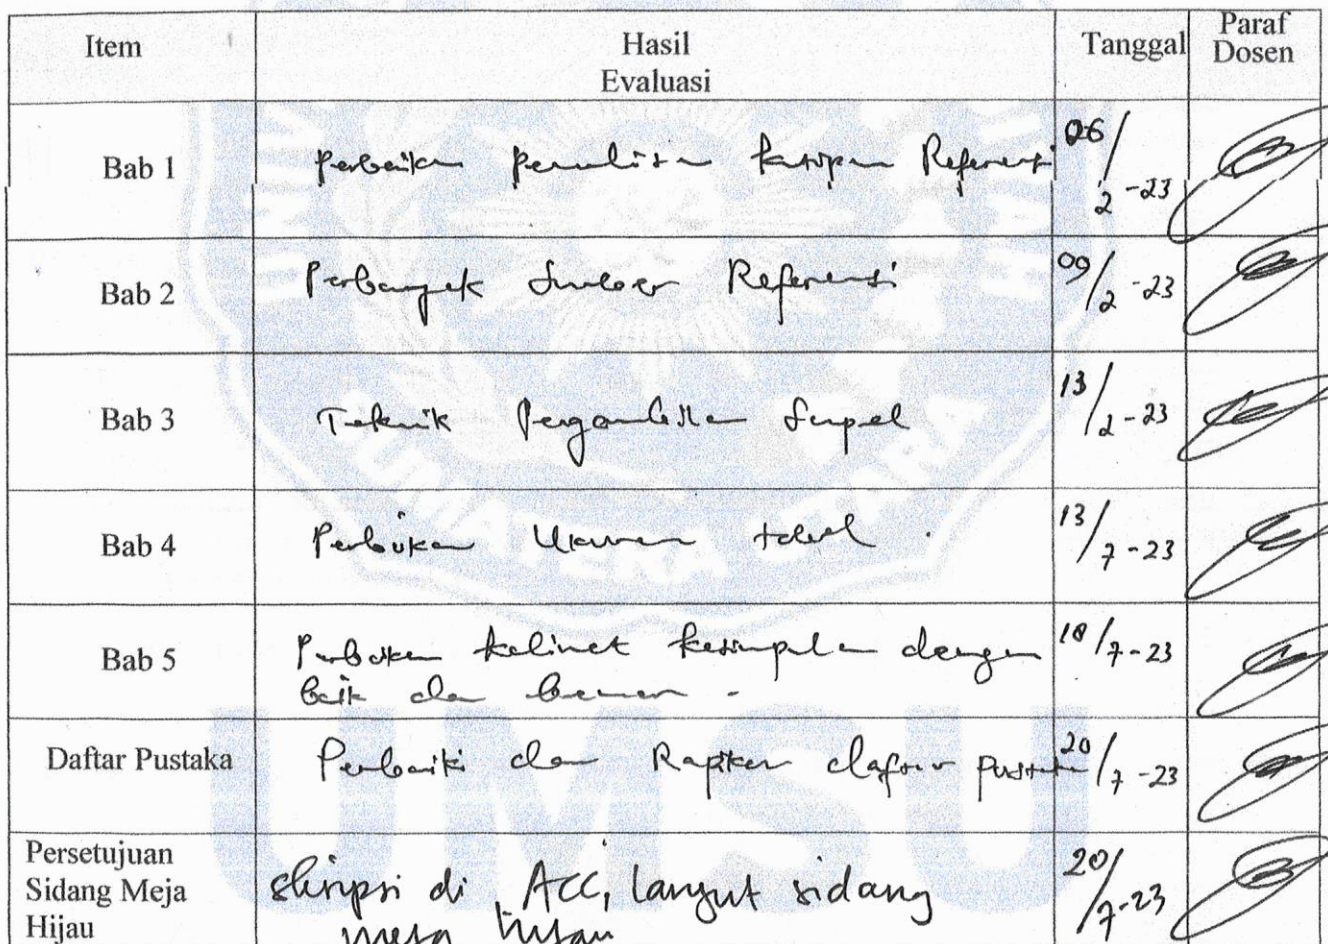 Item Hasil Evaluasi Tanggal Paraf Dosen
Bab 1 Perbaikan penulisan kutipan Referensi 06/2-23
Bab 2 Perbanyak Sumber Referensi 09/2-23
Bab 3 Teknik Pengambilan Sampel 13/2-23
Bab 4 Perbaikan Ukuran tabel. 13/7-23
Bab 5 Perbaikan kalimat kesimpulan dengan 18/7-23
baik dan benar -
Daftar Pustaka Perbaiki dan Rapikan daftar pustaka 20/7-23
Persetujuan
Sidang Meja skripsi di ACC, lanjut sidang 20/7-23
Hijau meja hijau
UMSU